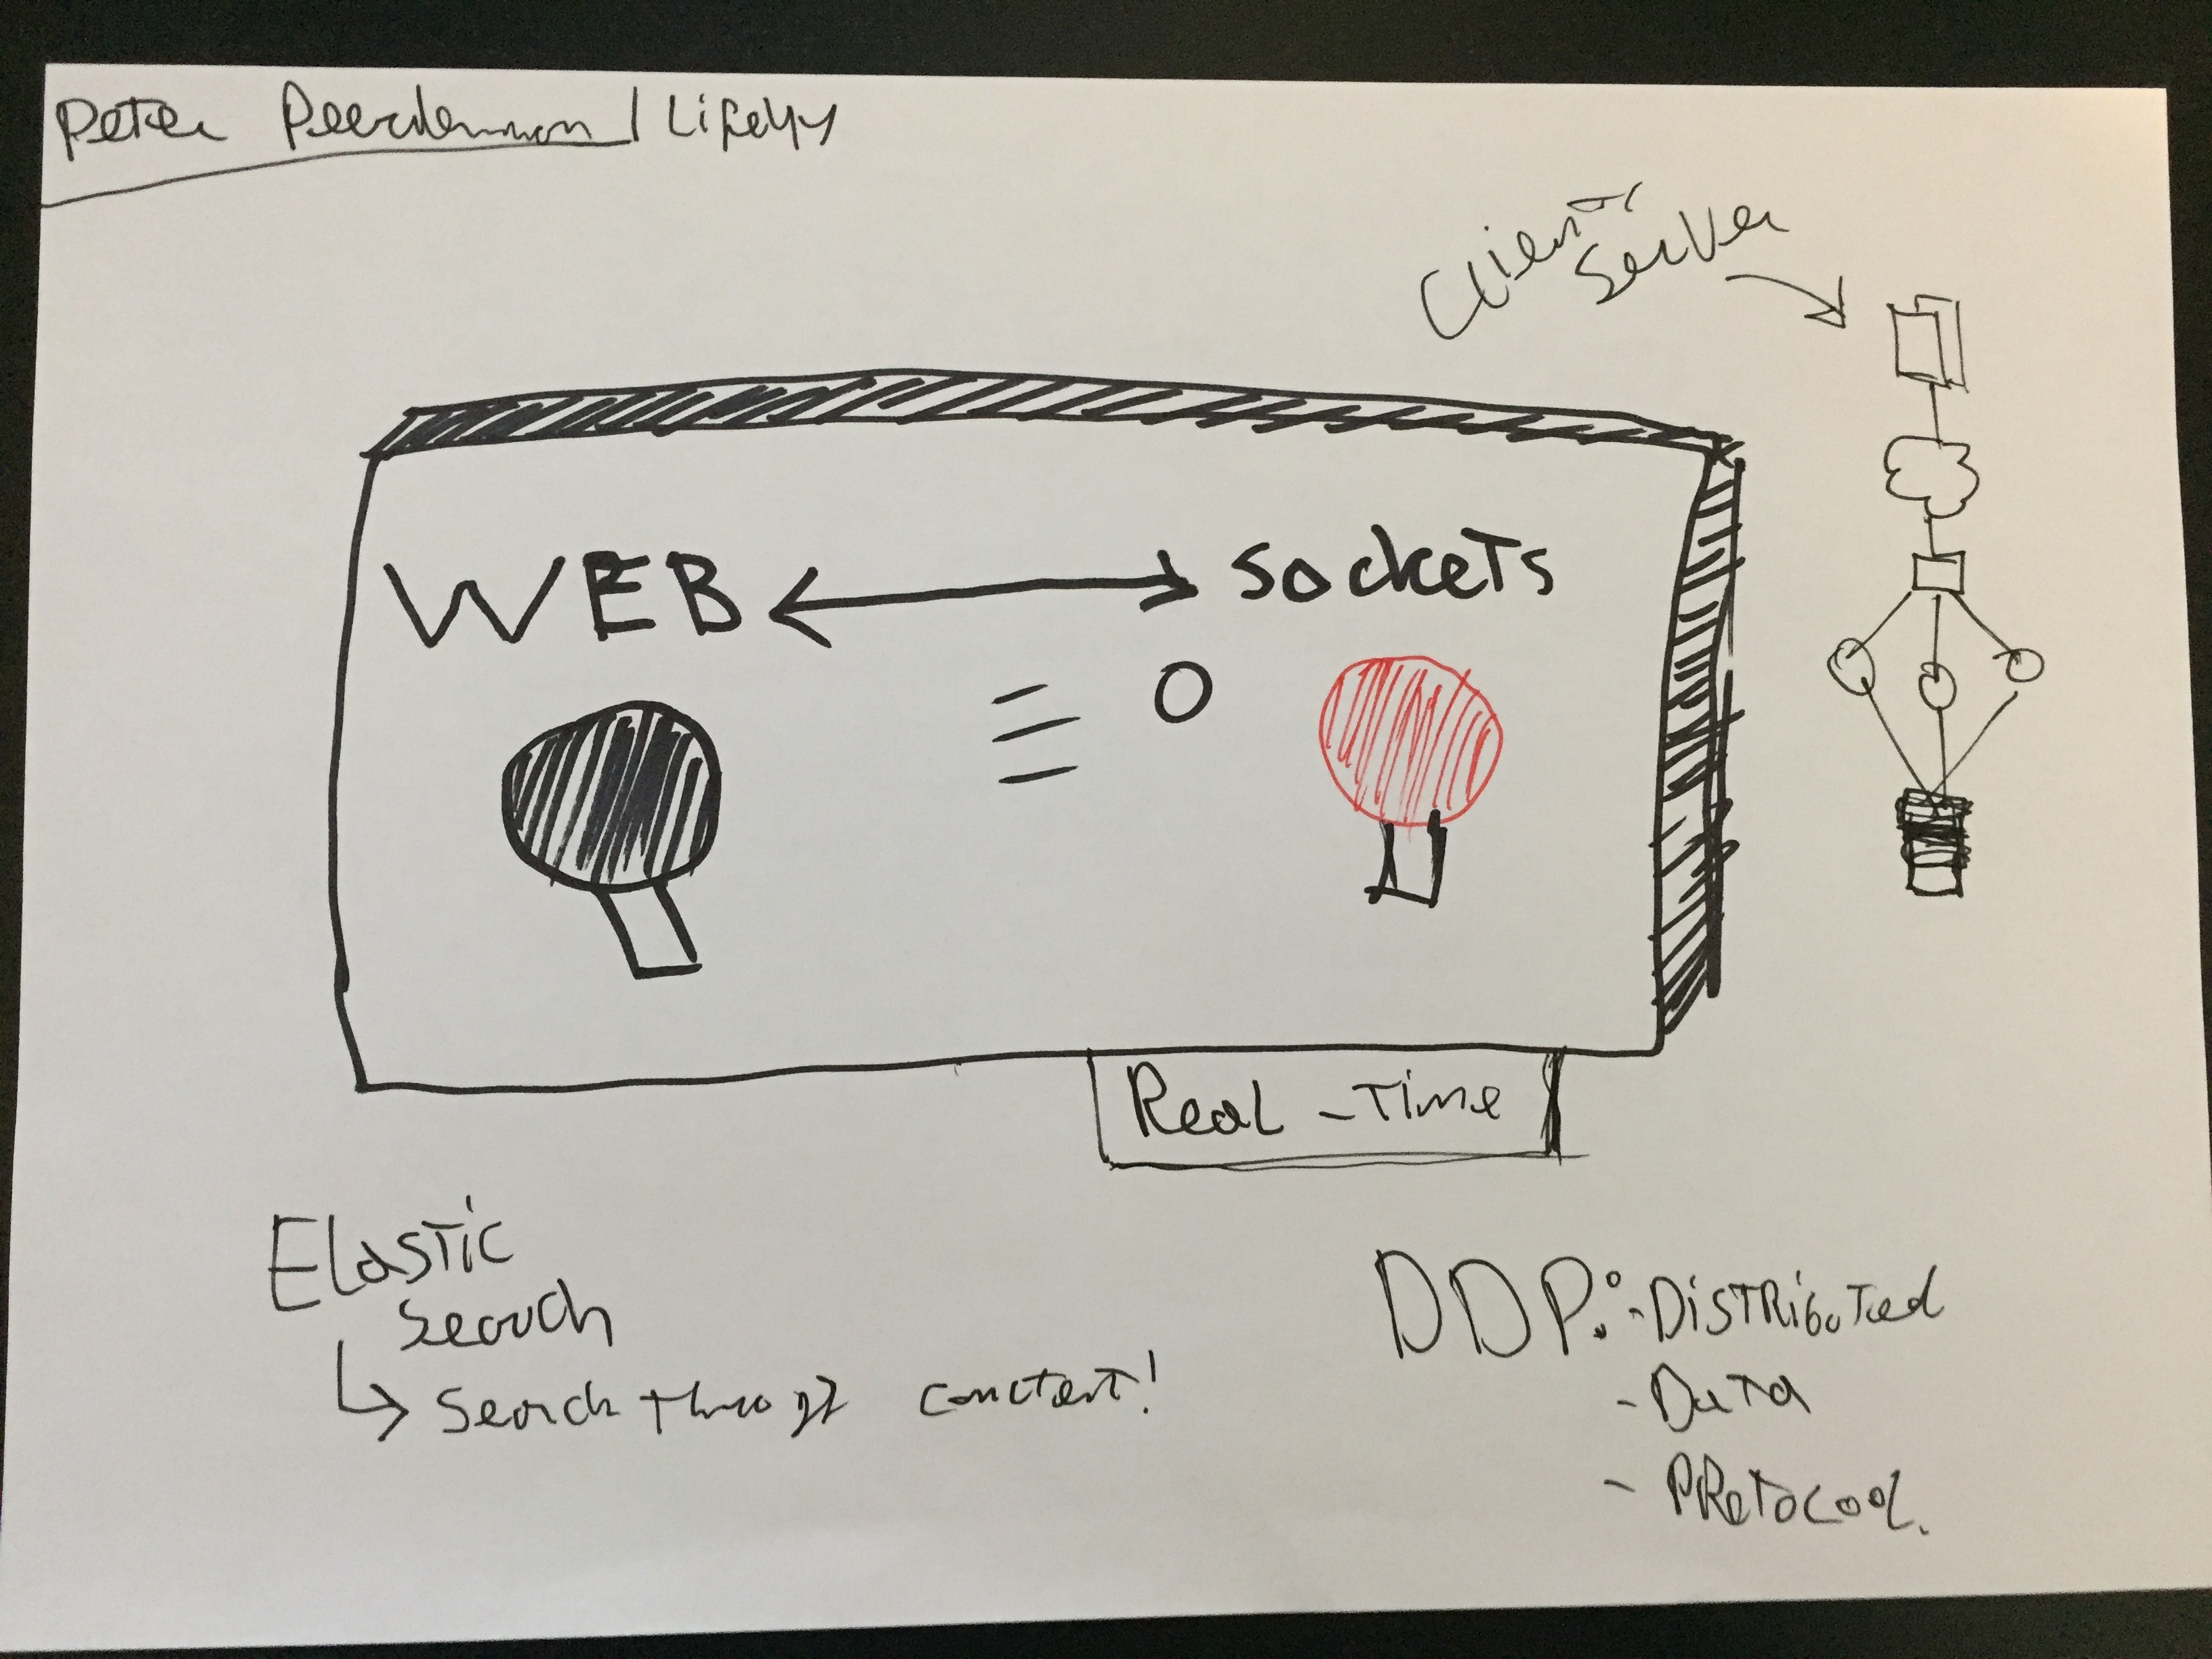 Peter Peerdeman | Lifely
Client
Server
WEB sockets
Real-Time
Elastic
Search
Search
DDP: - Distributed
- Data
- PRotocool.